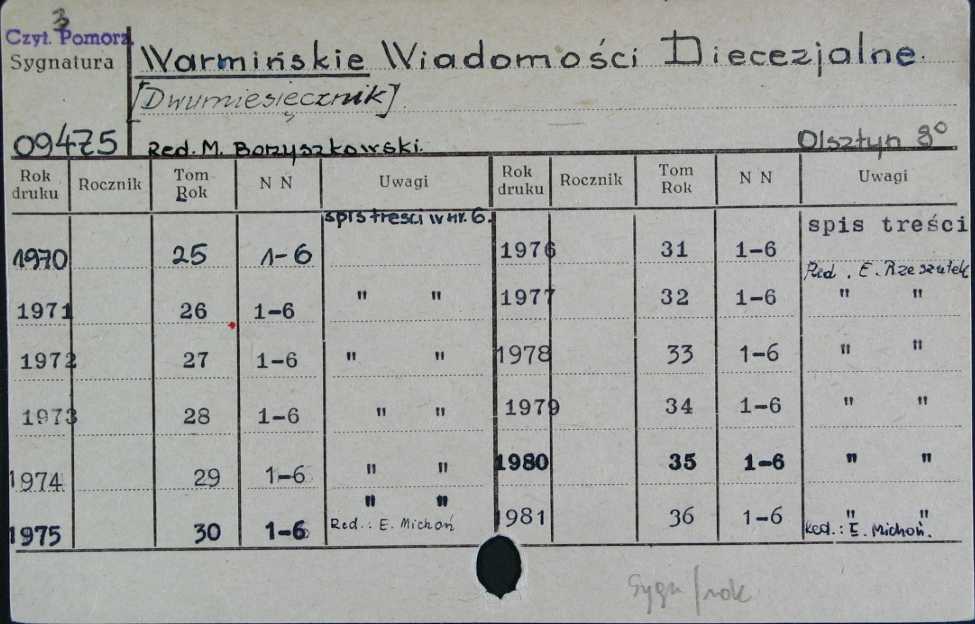 3
Czyt. Pomorz.
Sygnatura
Warmińskie Wiadomości Diecezjalne.
[Dwumiesięcznik]
09475 Red. M. Borzyszkowski. Olsztyn 8°
Rok druku Rocznik Tom Rok N N Uwagi Rok druku Rocznik Tom Rok N N Uwagi
spis treści w nr. 6.
1970 25 1-6
1971 26 1-6 " "
1972 27 1-6 " "
1973 28 1-6 " "
1974 29 1-6 " "
" "
1975 30 1-6 Red.: E. Michoń
spis treści
1976 31 1-6
Red. E. Rzeszutek
1977 32 1-6 " "
1978 33 1-6 " "
1979 34 1-6 " "
1980 35 1-6 " "
1981 36 1-6 " "
Red.: E. Michoń.
Sygn/rok